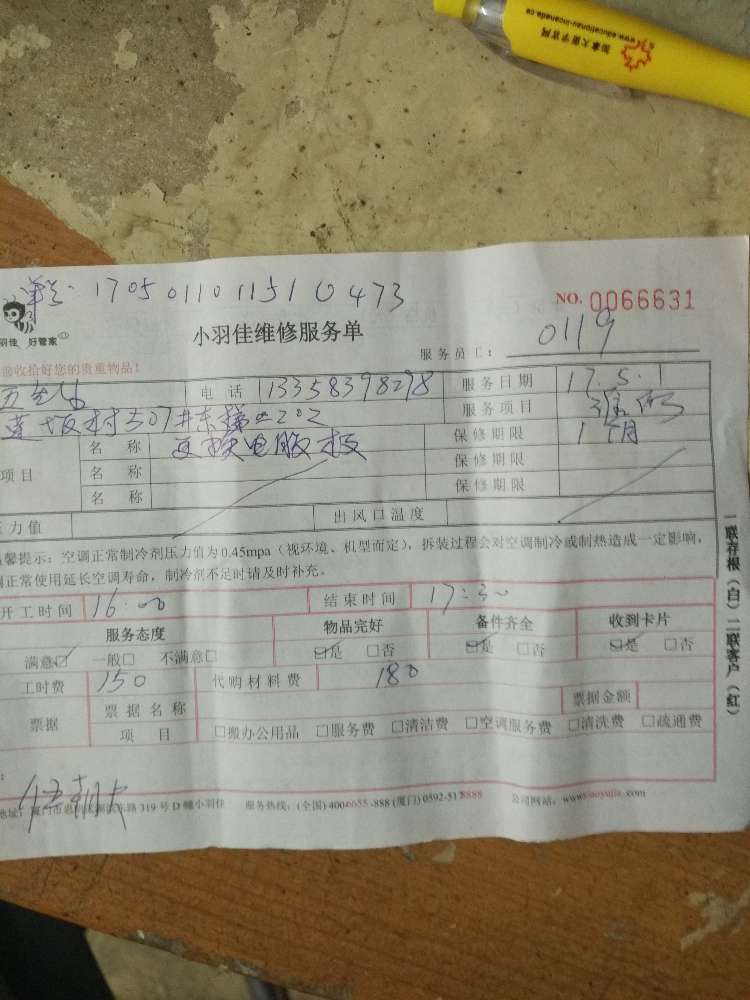 加拿大留学官网
www.educationau-incanada.ca
单号: 170501101151 0473
NO. 0066631
羽佳 好管家
小羽佳维修服务单
服务员工: 0119
前收拾好您的贵重物品!
电话 13358398298 服务日期 17.5.1
莲坂村507井东梯 202 服务项目 维修
项目 名称 更换电脑板 保修期限 1个月
名称 保修期限
名称 保修期限
压力值 出风口温度
温馨提示:空调正常制冷剂压力值为0.45mpa(视环境、机型而定),拆装过程会对空调制冷或制热造成一定影响,
正常使用延长空调寿命,制冷剂不足时请及时补充。
开工时间 16:00 结束时间 17:30
服务态度 物品完好 备件齐全 收到卡片
满意☑ 一般□ 不满意□ ☑是 □否 ☑是 □否 ☑是 □否
工时费 150 代购材料费 180
票据 票据名称 票据金额
项目 □搬办公用品 □服务费 □清洁费 □空调服务费 □清洗费 □疏通费
地址:厦门市思明区 东路319号D幢小羽佳 服务热线:(全国)400-6655-888 (厦门)0592-518888 公司网站:www.xiaoyujia.com
一联存根(白)二联客户(红)